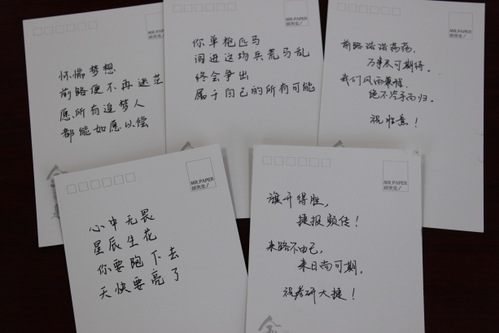 怀揣梦想
前路便不再迷茫
愿所有追梦人
都能如愿以偿
MR.PAPER
你单枪匹马
闯进这场兵荒马乱
终会争出
属于自己的所有可能
MR.PAPER
前路浩浩荡荡,
万事尽可期待.
我们风雨兼程,
绝不空手而归.
MR.PAPER
心中无畏
星辰生花
你要跑下去
天快要亮了
MR.PAPER
旗开得胜,
捷报频传!
来路不由己,
来日尚可期,
祝考研大捷!